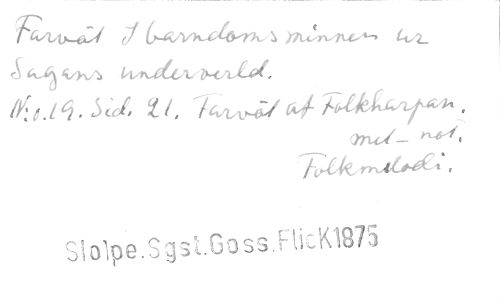 Farväl I barndomsminnen ur
Sagans underverld.
N:o.19. Sid. 21. Farväl af Folkharpan.
mel-not.
Folkmelodi.
Slo)pe.Sgst.Goss.FlicK1875